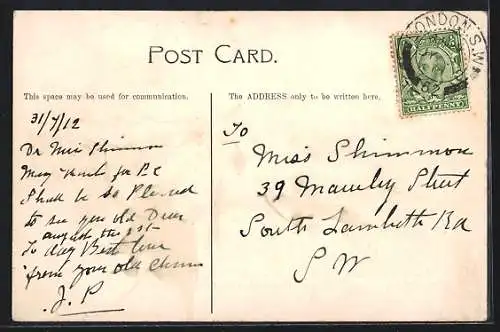 POST CARD.
This space may be used for communication.
The ADDRESS only to be written here.
LONDON.S.W
HALFPENNY
31/7/12
Dr Miss Shimmon
Many thanks for P C
Shall be be Pleased
to see you old Dear
august the 1st
To day Best love
from your old Chum
J. P
To
Miss Shimmon
39 Street
South Lambeth Rd
S W